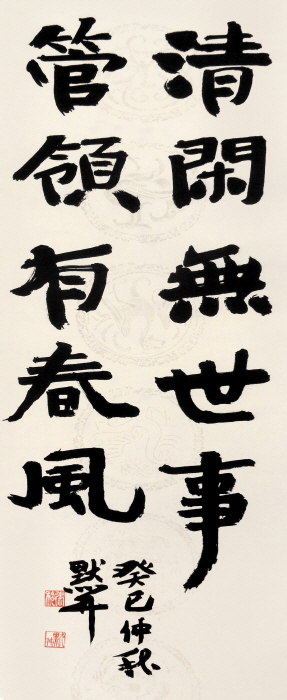 清閑無世事
管領有春風
癸巳仲秋
默